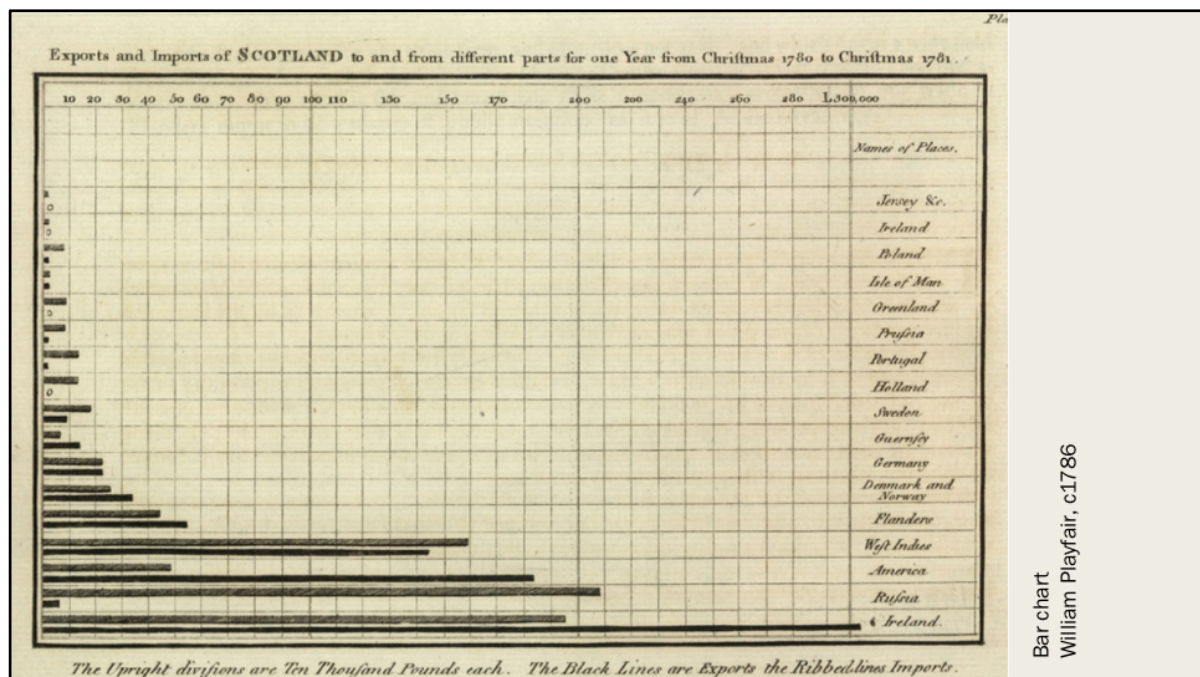 Pla
Exports and Imports of SCOTLAND to and from different parts for one Year from Chriſtmas 1780 to Chriſtmas 1781.
10 20 30 40 50 60 70 80 90 100 110 130 150 170 200 200 240 260 280 L300,000
Names of Places.
Jersey &c.
0
Ireland
0
Poland
Isle of Man
Greenland
0
Pruſsia
Portugal
Holland
0
Sweden
Guernſey
Germany
Denmark and
Norway
Flanders
Weſt Indies
America
Ruſsia
Ireland.
The Upright diviſions are Ten Thouſand Pounds each. The Black Lines are Exports the Ribbed lines Imports.
Bar chart
William Playfair, c1786